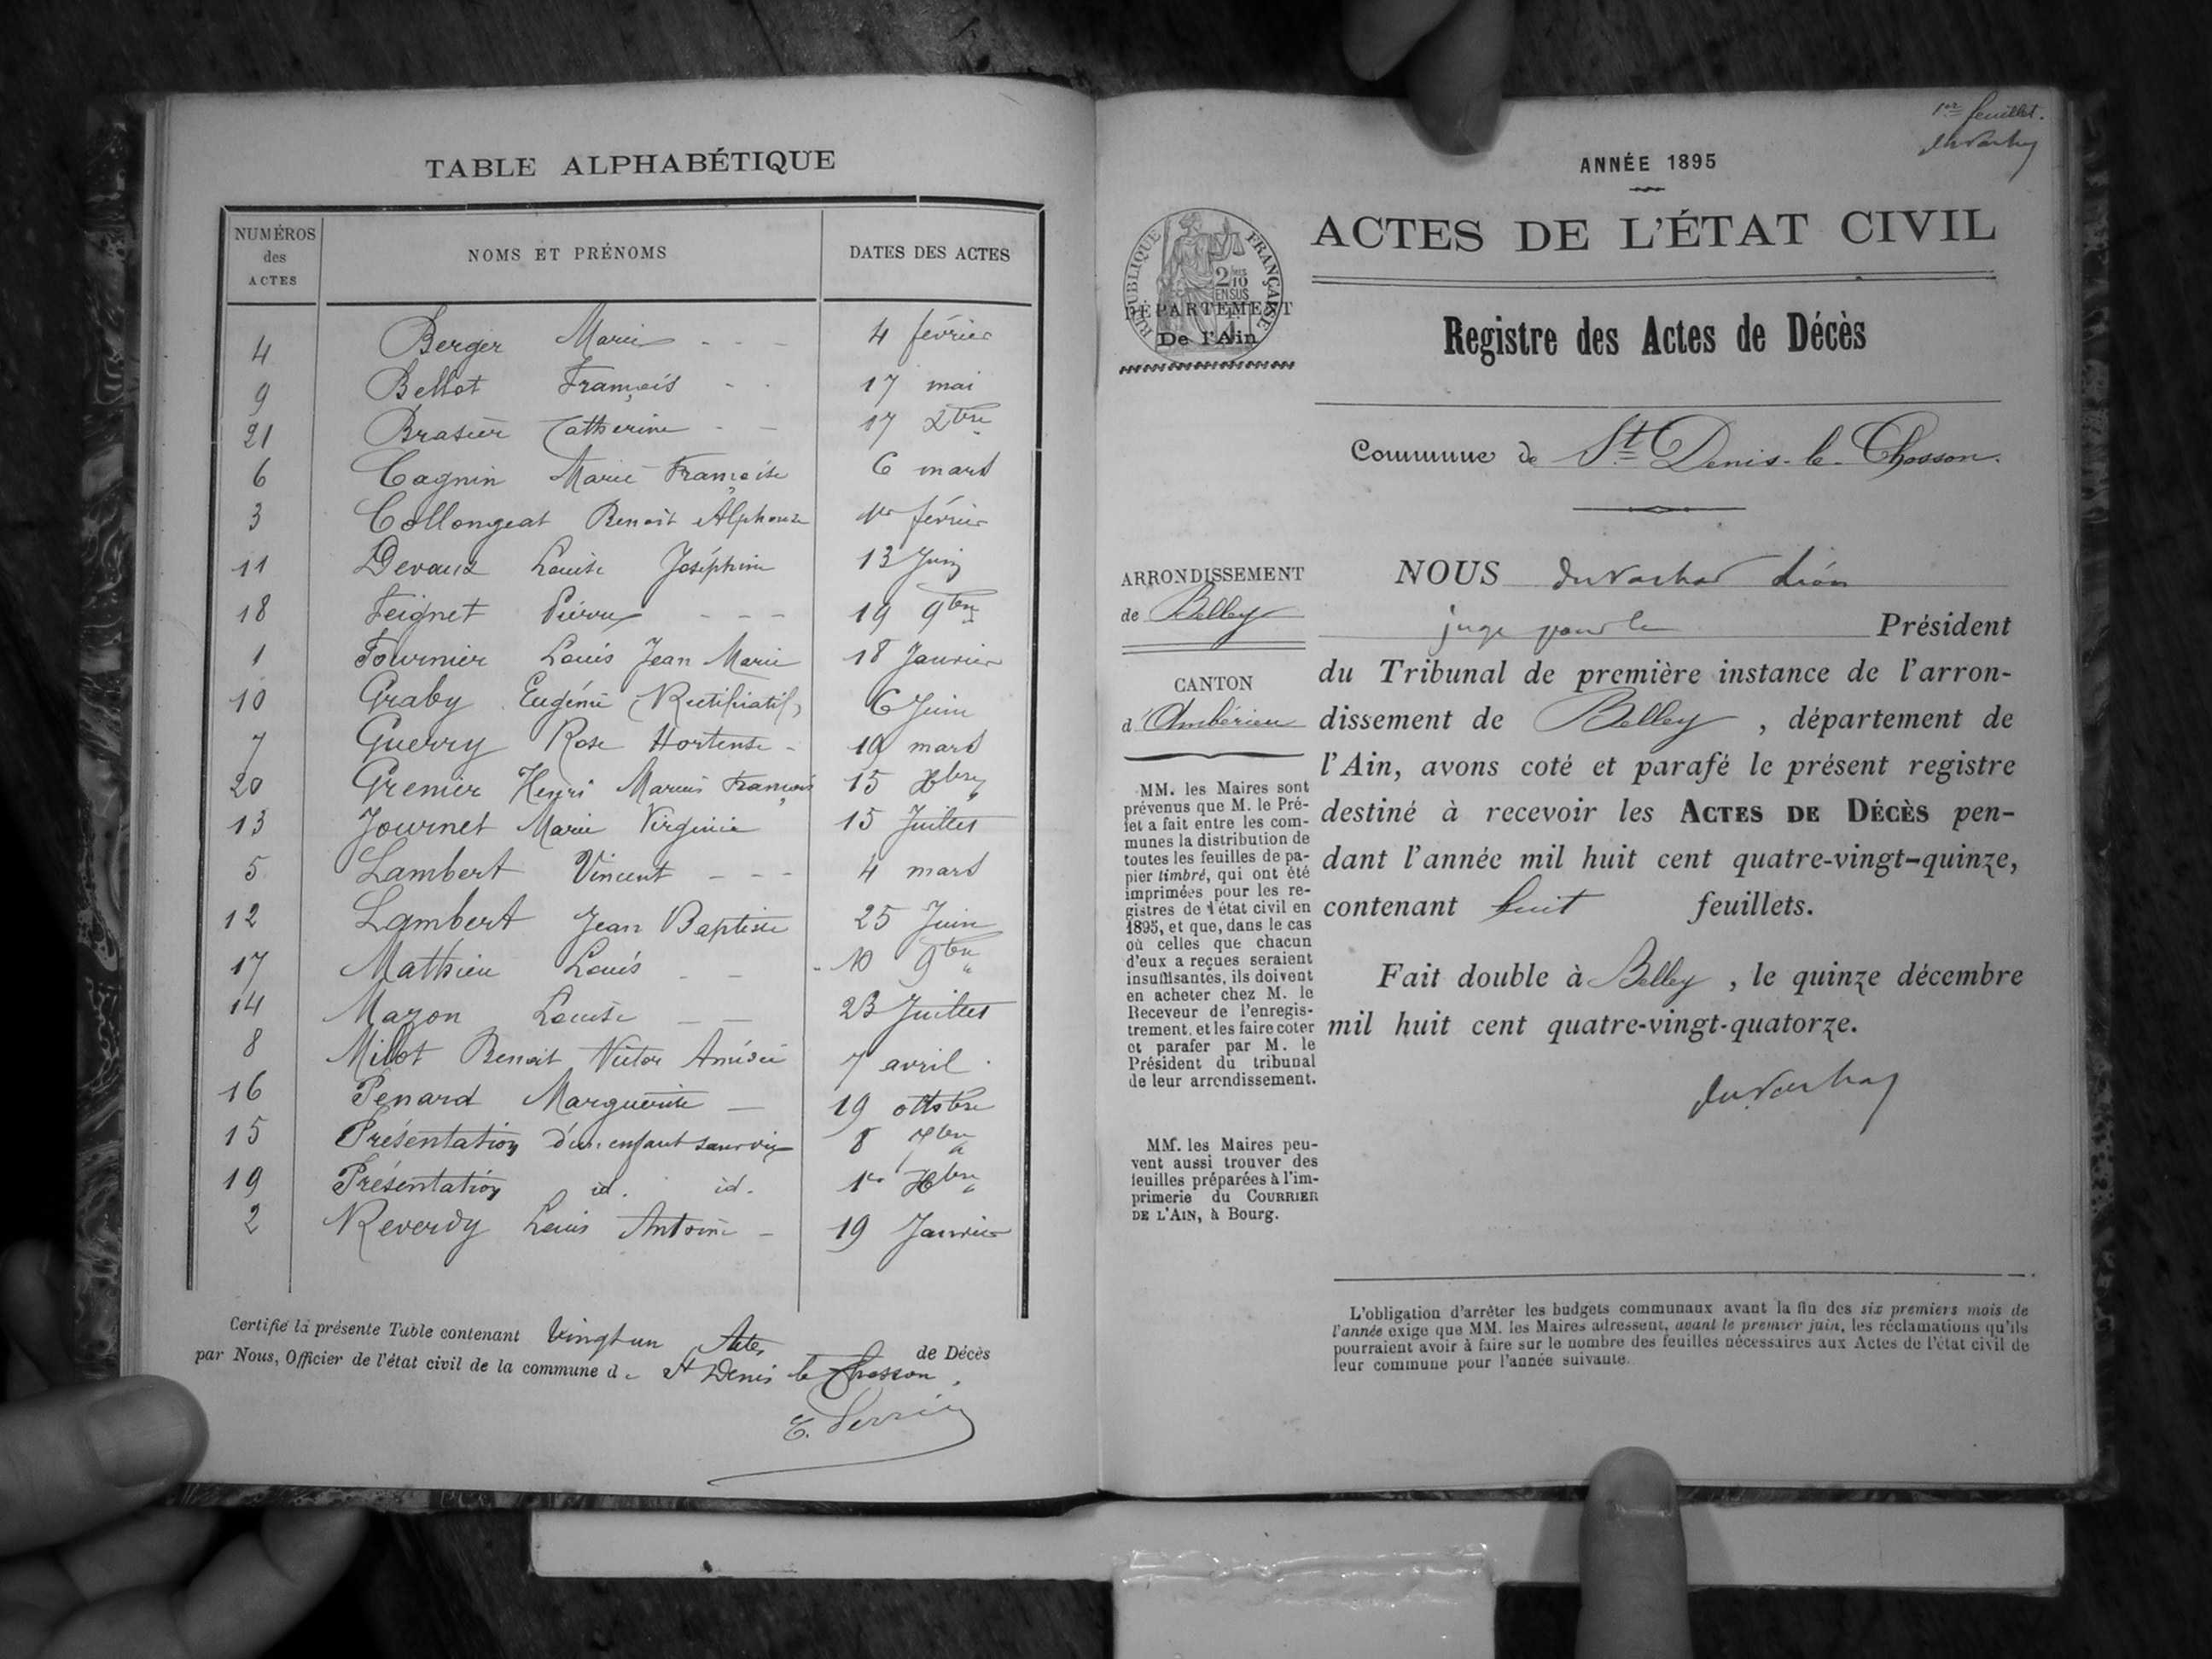 TABLE ALPHABÉTIQUE
NUMÉROS des ACTES
NOMS ET PRÉNOMS
DATES DES ACTES
4 Berger Marie - - - 4 février
9 Bellot François - - 17 mai
21 Brasier Catherine - - 17 Xbre
6 Cagnin Marie Françoise 6 mars
3 Collongeat Benoit Alphonse 1er février
11 Devaux Louise Joséphine 13 Juin
18 Feignet Pierre - - - 19 9bre
1 Fournier Louis Jean Marie 18 Janvier
10 Graby Eugénie (Rectificatif) 6 Juin
7 Guerry Rose Hortense - 19 mars
20 Grenier Henri Marius François 15 Xbre
13 Journet Marie Virginie 15 Juillet
5 Lambert Vincent - - - 4 mars
12 Lambert Jean Baptiste 25 Juin
17 Mathieu Louis - - 10 9bre
14 Mazon Louise - - 23 Juillet
8 Milot Benoit Victor Amédée 7 avril
16 Penard Marguerite - 19 octobre
15 Présentation d'un enfant sans vie 8 7bre
19 Présentation id. id. 1er Xbre
2 Reverdy Louis Antoine - 19 Janvier
Certifié la présente Table contenant Vingt un Actes de Décès
par Nous, Officier de l'état civil de la commune de St Denis le Chosson.
1er feuillet.
ANNÉE 1895
RÉPUBLIQUE FRANÇAISE
2/10 EN SUS
DÉPARTEMENT
De l'Ain
ACTES DE L'ÉTAT CIVIL
Registre des Actes de Décès
Commune de St Denis-le-Chosson.
ARRONDISSEMENT
de Belley
CANTON
d'Ambérieu
MM. les Maires sont
prévenus que M. le Pré-
fet a fait entre les com-
munes la distribution de
toutes les feuilles de pa-
pier timbré, qui ont été
imprimées pour les re-
gistres de l'état civil en
1895, et que, dans le cas
où celles que chacun
d'eux a reçues seraient
insuffisantes, ils doivent
en acheter chez M. le
Receveur de l'enregis-
trement, et les faire coter
et parafer par M. le
Président du tribunal
de leur arrondissement.
MM. les Maires peu-
vent aussi trouver des
feuilles préparées à l'im-
primerie du COURRIER
DE L'AIN, à Bourg.
NOUS Léon
juge pour le Président
du Tribunal de première instance de l'arron-
dissement de Belley, département de
l'Ain, avons coté et parafé le présent registre
destiné à recevoir les ACTES DE DÉCÈS pen-
dant l'année mil huit cent quatre-vingt-quinze,
contenant huit feuillets.
Fait double à Belley, le quinze décembre
mil huit cent quatre-vingt-quatorze.
L'obligation d'arrêter les budgets communaux avant la fin des six premiers mois de
l'année exige que MM. les Maires adressent, avant le premier juin, les réclamations qu'ils
pourraient avoir à faire sur le nombre des feuilles nécessaires aux Actes de l'état civil de
leur commune pour l'année suivante.